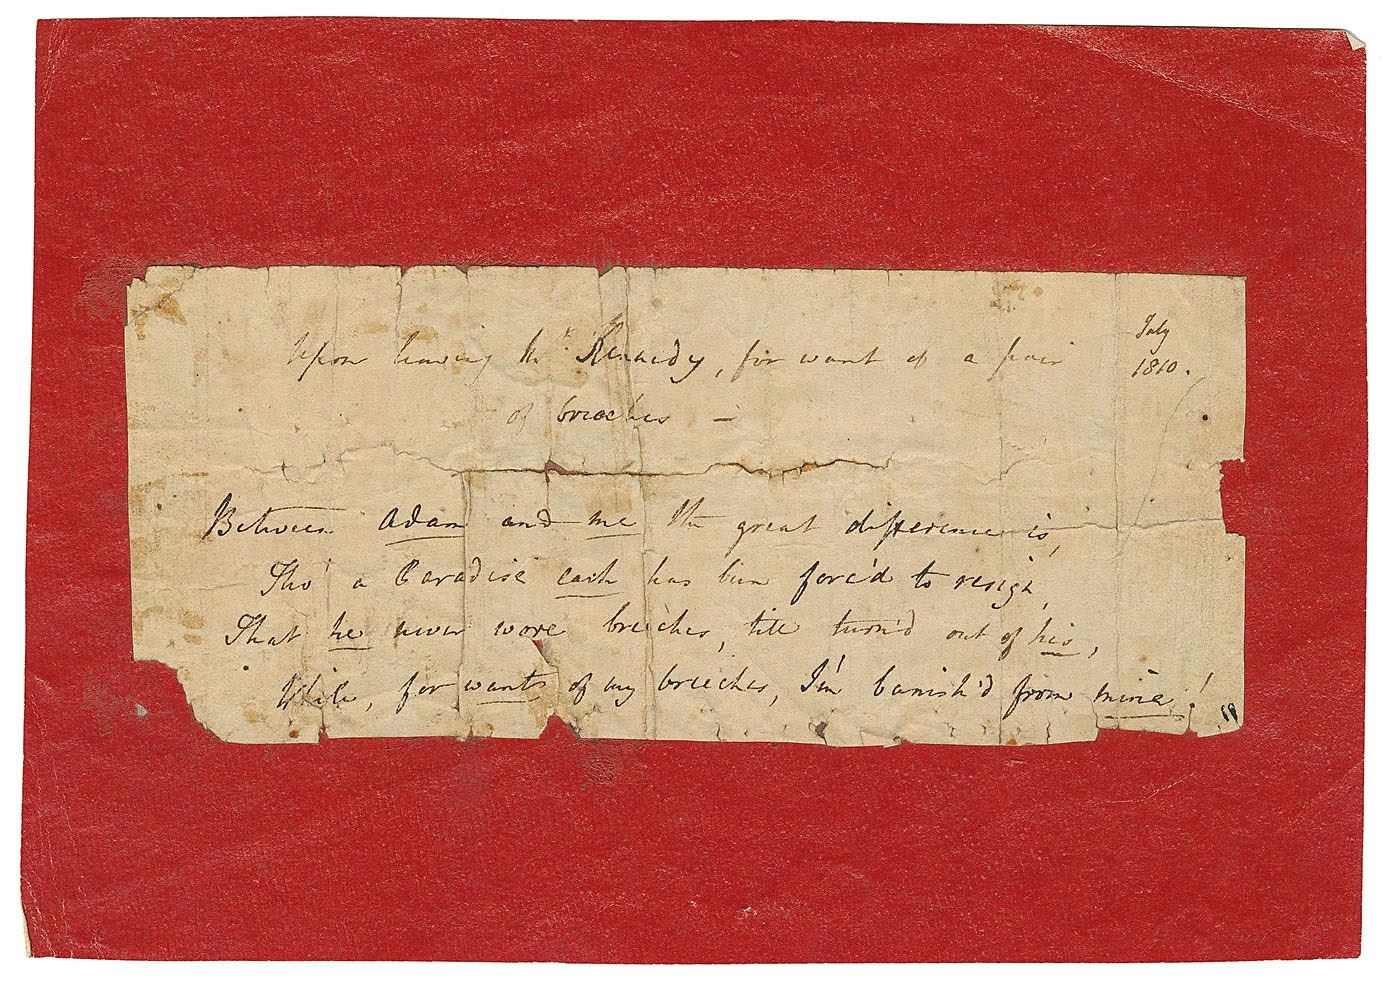 Upon leaving Mr. Kennedy, for want of a pair
of breeches —
July
1810.
Between Adam and me the great difference is,
Tho' a Paradise each has been forc'd to resign,
That he never wore breeches, till turn'd out of his,
While, for want of my breeches, I'm banish'd from mine!